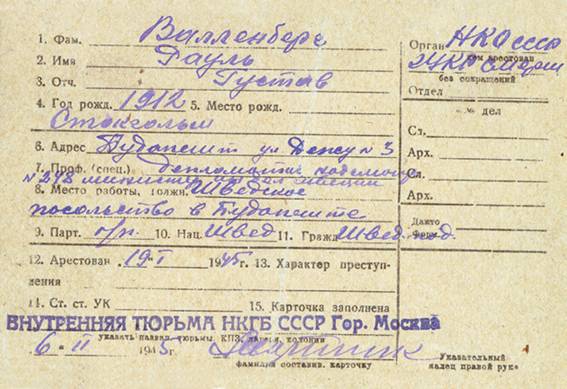 1. Фам. Валленберг
2. Имя Рауль
3. Отч. Густав
4. Год рожд. 1912 5. Место рожд.
Стокгольм
6. Адрес Будапешт ул № 3
7. Проф. (спец.) дипломатич.
8. Место работы, должн. Шведское
посольство в Будапеште
9. Парт. б/п. 10. Нац. Швед 11. Гражд. Швед. под.
12. Арестован 19-I 1945 г. 13. Характер преступ-
ления
14. Ст. ст. УК 15. Карточка заполнена
ВНУТРЕННЯЯ ТЮРЬМА НКГБ СССР Гор. Москва
указать назван. тюрьмы, КПЗ, лагеря, колонии
6-II 1945 г.
фамилия составив. карточку
Орган НКО СССР
кем арестован
без сокращений
Отдел
№ дел
Сл.
Арх.
Сл.
Арх.
Дакто
Указательный
палец правой руки